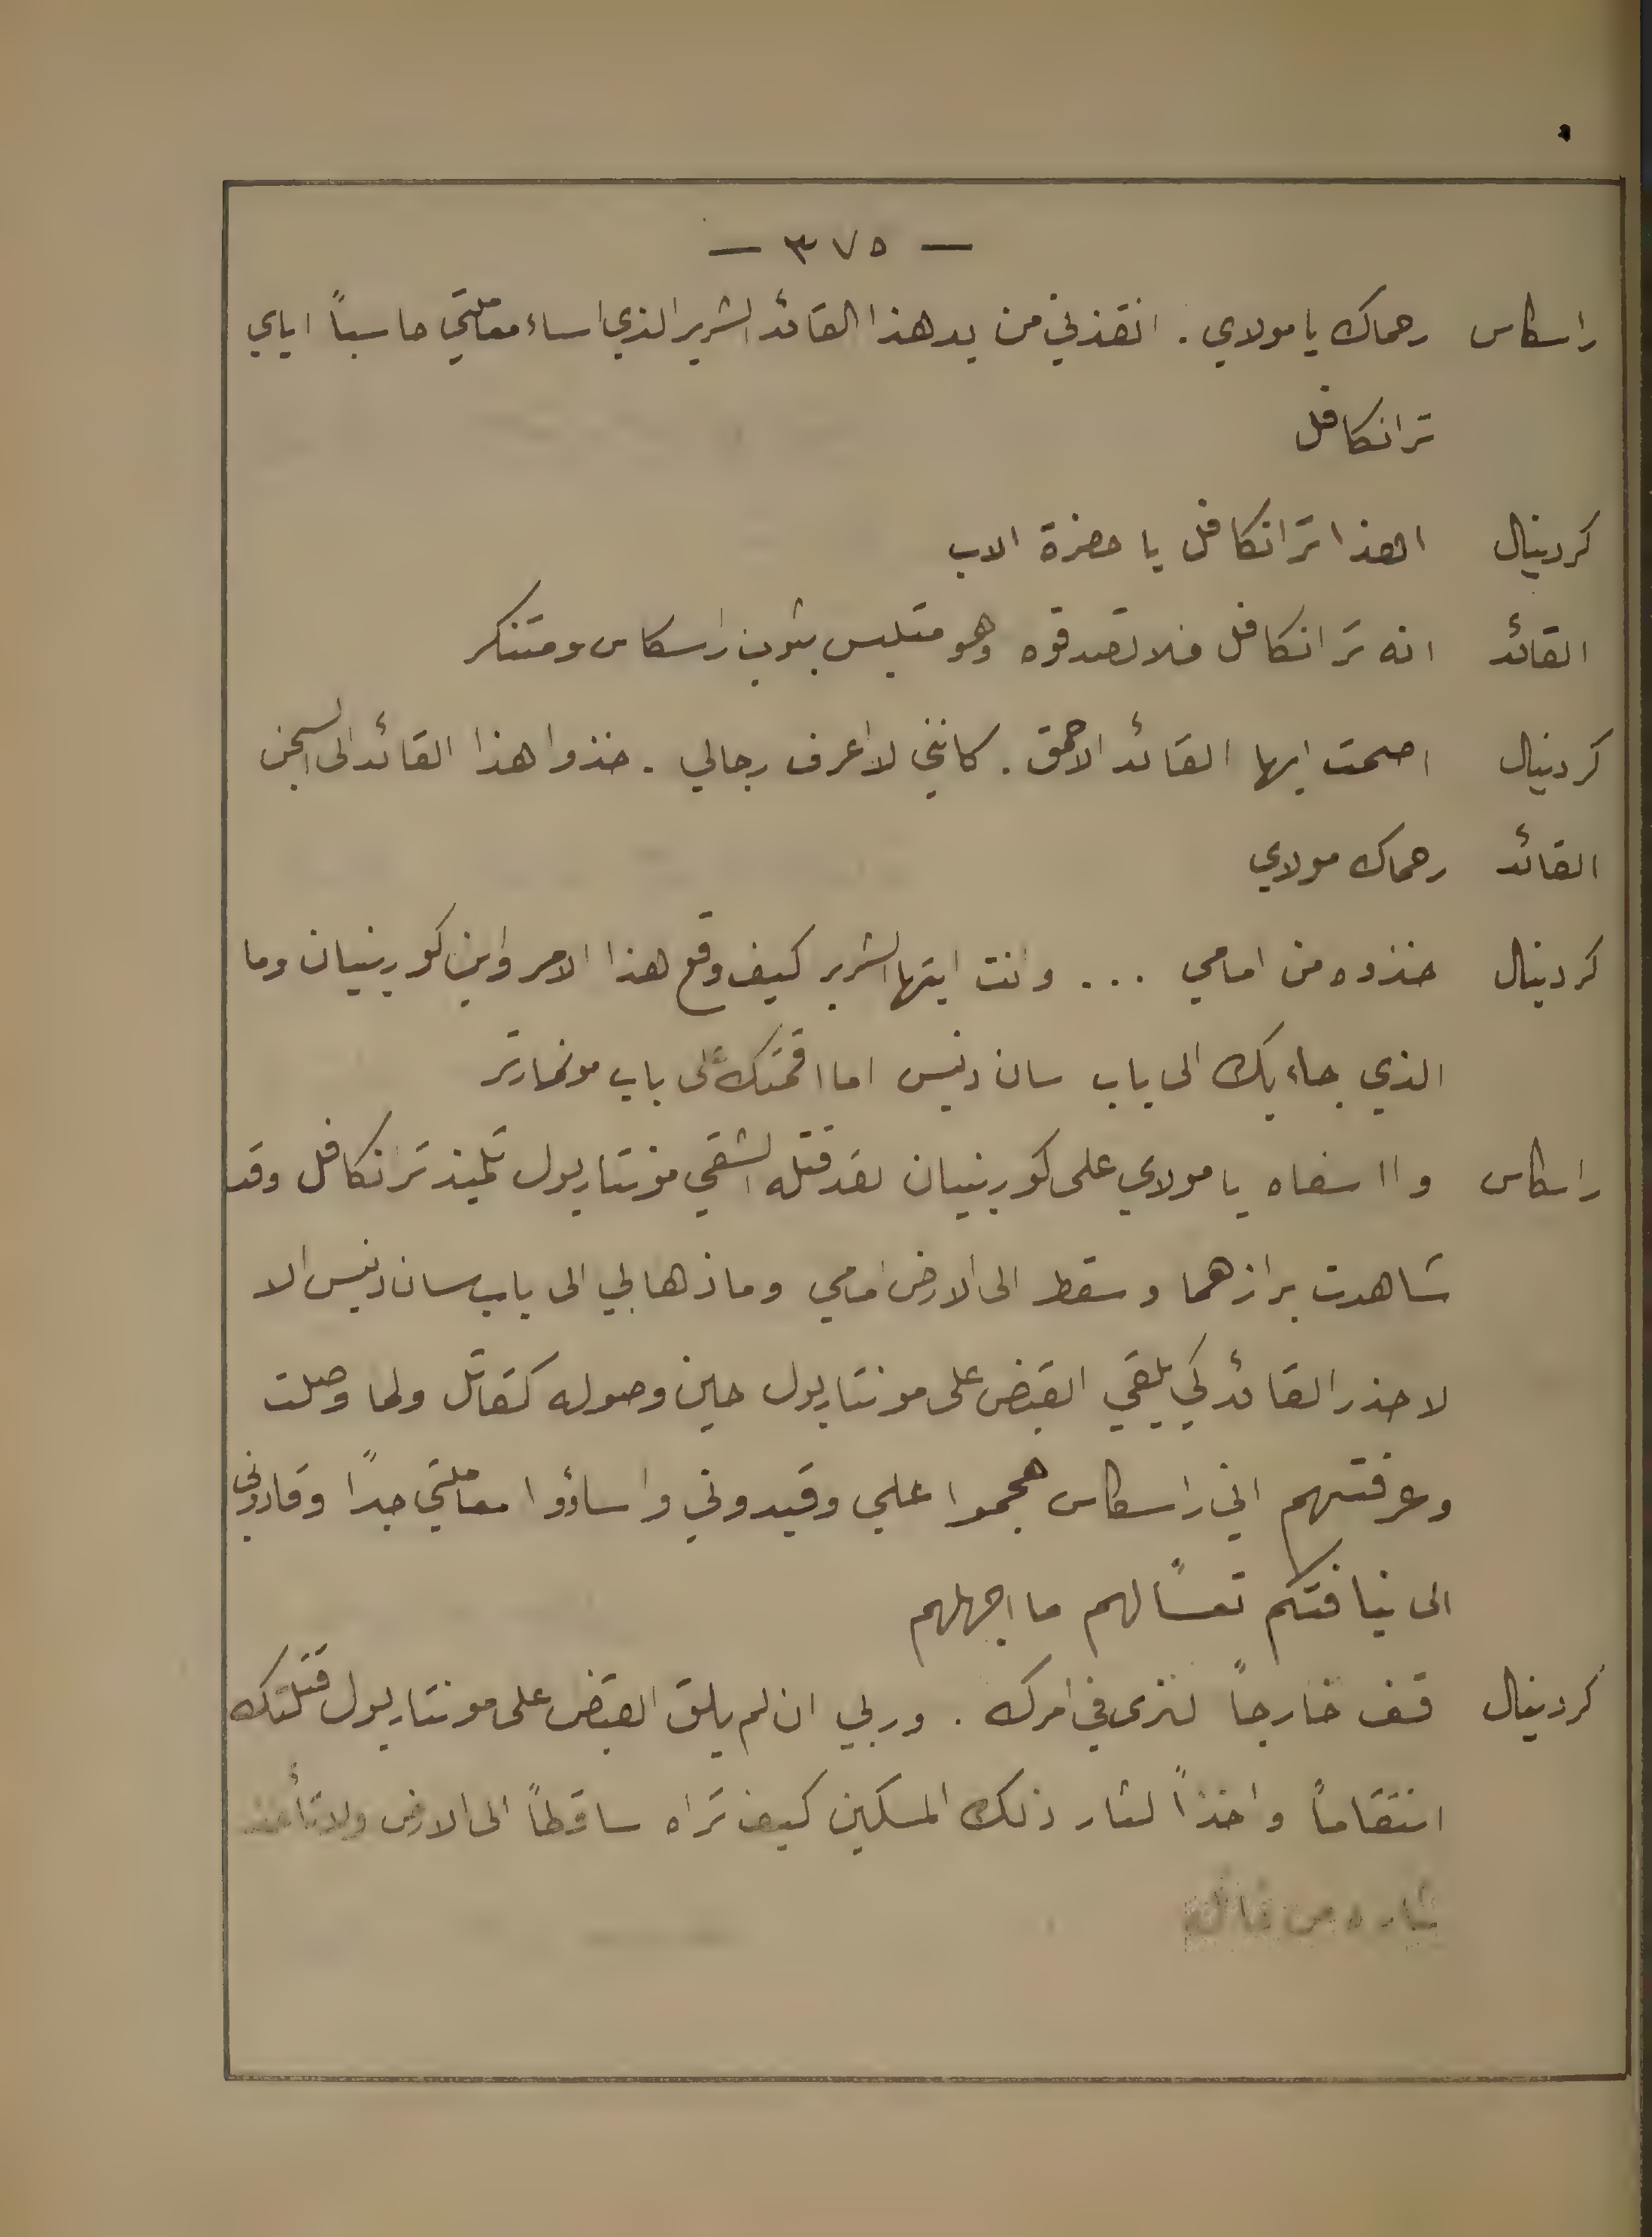 — ٣٧٥ —
راسكاس رحماك يا مولاي . انقذني من يد هذا القائد الشرير الذي اساء معاملتي حاسباً اياي
ترانكافل
كردينال اهذا ترانكافل يا حضرة الاب
القائد انه ترانكافل فلا تصدقوه وهو متلبس بثوب راسكاس ومتنكر
كردينال اصمت ايها القائد الاحمق . كانني لا اعرف رجالي . خذوا هذا القائد الى السجن
القائد رحماك مولاي
كردينال خذوه من امامي ... وانت ايتها الشرير كيف وقع هذا الامر واين كورينيان وما
الذي جاء بك الى باب سان دنيس اما اقمتك على باب مونمارتر
راسكاس وا اسفاه يا مولاي على كورينيان لقد قتله الشقي مونتاريول تلميذ ترانكافل وقد
شاهدت برازهما وسقط الى الارض امامي وما ذهابي الى باب سان دنيس الا
لاحذر القائد كي يلقي القبض على مونتاريول حين وصوله كقاتل ولما وصلت
وعرفتهم اني راسكاس هجموا علي وقيدوني واساؤوا معاملتي جداً وقادوني
الى نيافتكم تعساً لهم ما اجهلهم
كردينال قف خارجاً لنرى في امرك . وربي ان لم يلق القبض على مونتاريول قتلتك
انتقاماً واخذاً لثار ذلك المسكين كيف تراه ساقطاً الى الارض ولا تأخذ
ثاره من قاتله